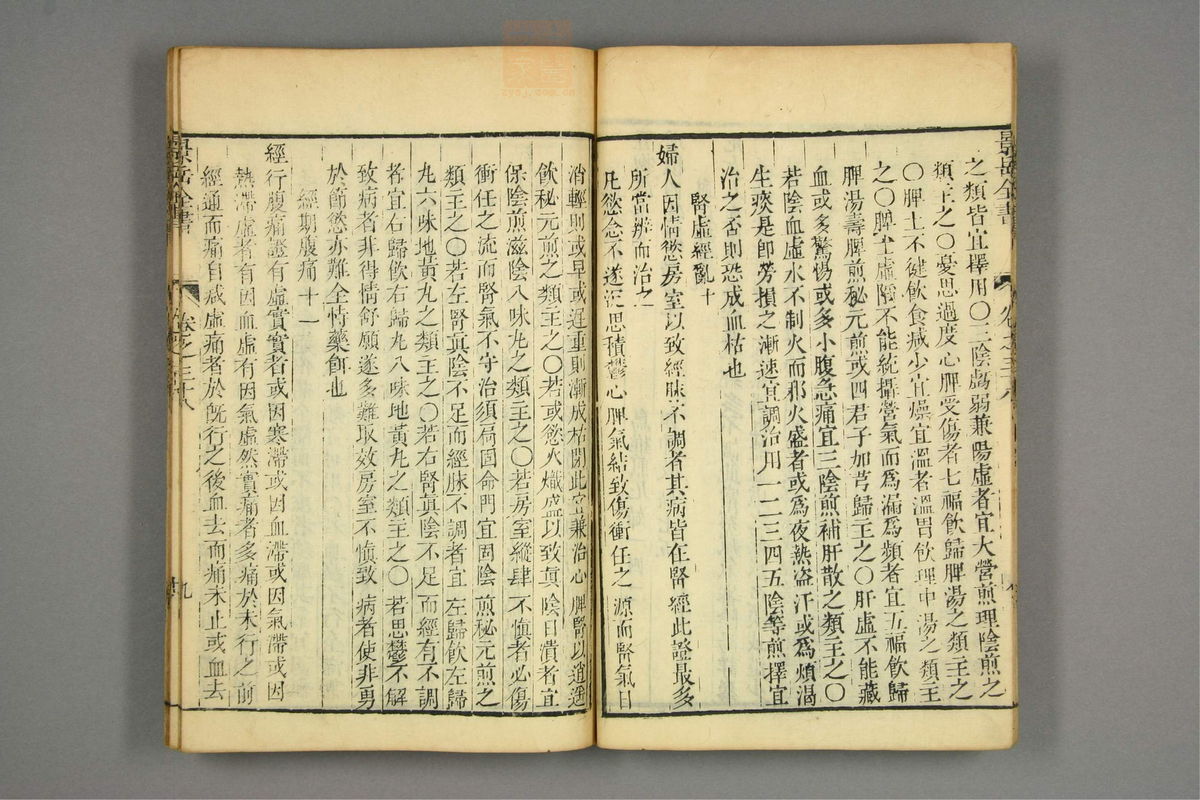 之類皆宜擇用〇三陰虧弱兼陽虛者宜大營煎理陰煎之
類主之〇憂思過度心脾受傷者七福飲歸脾湯之類主之
〇脾土不健飲食減少宜燥宜溫者溫胃飲理中湯之類主
之〇脾土虛陷不能統攝營氣而為漏為頻者宜五福飲歸
脾湯壽脾煎秘元煎或四君子加芎歸主之〇肝虛不能藏
血或多驚惕或多小腹急痛宜三陰煎補肝散之類主之〇
若陰血虛水不制火而邪火盛者或為夜熱盜汗或為煩渴
生痰是即勞損之漸速宜調治用一二三四五陰等煎擇宜
治之否則恐成血枯也
腎虛經亂十
婦人因情慾房室以致經脉不調者其病皆在腎經此證最多
所當辨而治之
凡慾念不遂沉思積鬱心脾氣結致傷衝任之源而腎氣日
消輕則或早或遲重則漸成枯閉此宜兼治心脾腎以逍遙
飲秘元煎之類主之〇若或慾火熾盛以致真陰日潰者宜
保陰煎滋陰八味丸之類主之〇若房室縱肆不慎者必傷
衝任之流而腎氣不守治須扃固命門宜固陰煎秘元煎之
類主之〇若左腎真陰不足而經脉不調者宜左歸飲左歸
丸六味地黃丸之類主之〇若右腎真陰不足而經有不調
者宜右歸飲右歸丸八味地黃丸之類主之〇若思鬱不解
致病者非得情舒願遂多難取效房室不慎致病者使非勇
於節慾亦難全恃藥餌也
經期腹痛十一
經行腹痛證有虛實實者或因寒滯或因血滯或因氣滯或因
熱滯虛者有因血虛有因氣虛然實痛者多痛於未行之前
經通而痛自減虛痛者於既行之後血去而痛未止或血去
景岳全書
卷之三十八
九